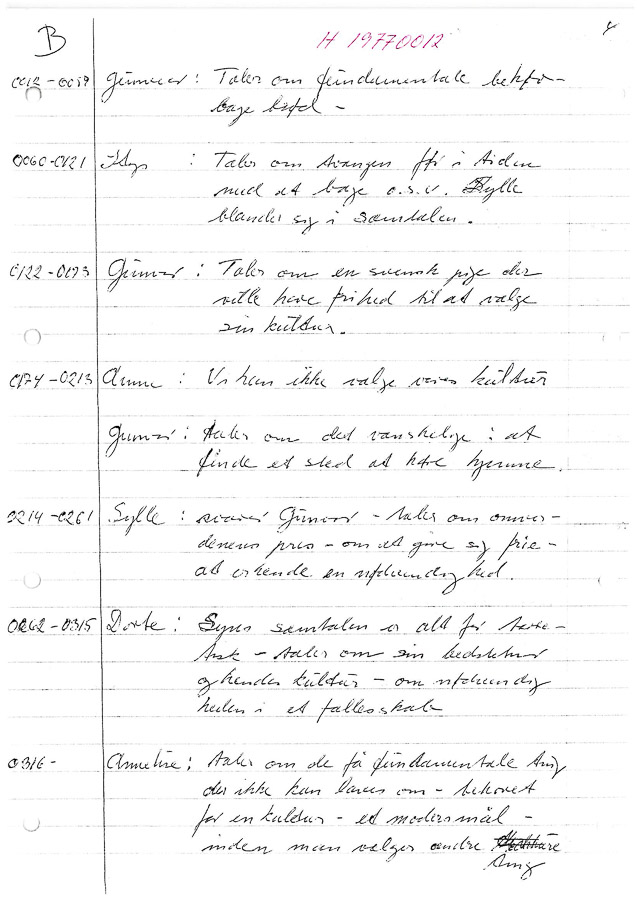 B
H 19770012
4
0012-0059 Gunver : Taler om fundamentale
bage
0060-0121 : Taler om trangen før i tiden
med at bage o.s.v. Sylle
blander sig i samtalen.
0122-0173 Gunver : Taler om en svensk pige der
ville have frihed til at vælge
sin kultur.
0174-0213 Anne : Vi kan ikke vælge vores kultur
Gunver : taler om det vanskelige i at
finde et sted at høre hjemme.
0214-0261 Sylle : svarer Gunver - taler om omver-
denens pres - om at give sig fri -
at erkende en nødvendighed.
0262-0315 Dorte : Synes samtalen er alt for teore-
tisk - taler om sin bedstemor
og hendes kultur - om nødvendig
heden i et fællesskab
0316- Annelise : taler om de få fundamentale ting
der ikke kan laves om - behovet
for en kultur - et modersmål -
inden man vælger andre
ting